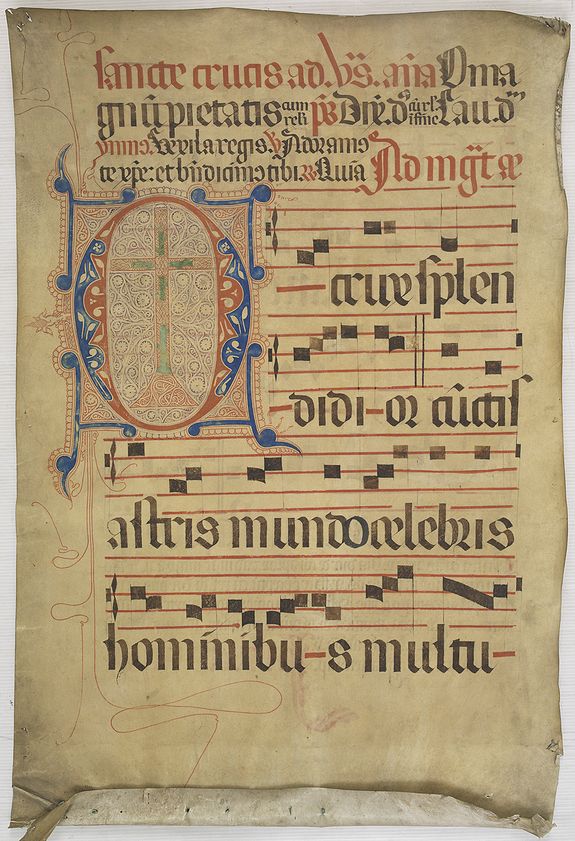 sancte crucis ad. vs. ana O ma
gnu pietatis cum reli. ps Dixit. dñs cũ rls. istine Lauda
ymno. Vexila regis. v Adoramꝰ
te xpe: et bñdicimꝰ tibi. R Quia Ad mgt ae
O crux splen
didi-or cũctis
astris mundo celebris
hominibu-s multu-